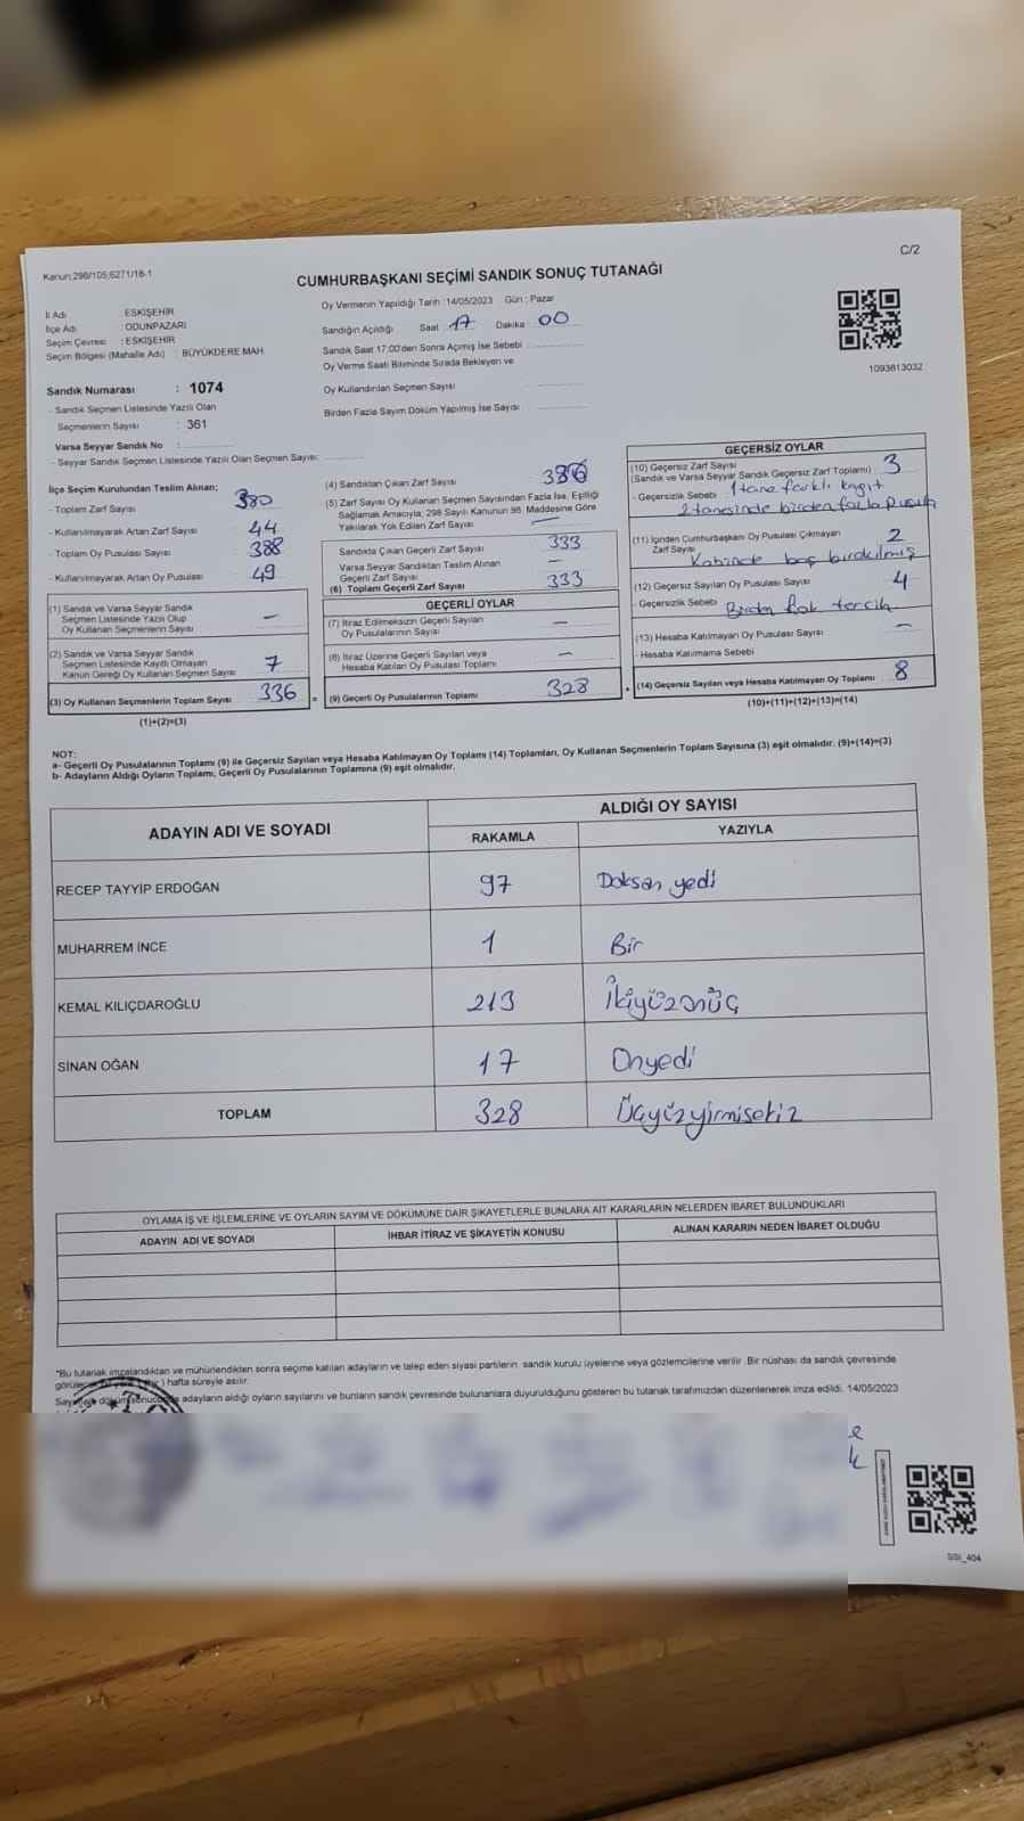 Kanun:298/105,6271/18-1
C/2
CUMHURBAŞKANI SEÇİMİ SANDIK SONUÇ TUTANAĞI
İl Adı : ESKİŞEHİR
İlçe Adı : ODUNPAZARI
Seçim Çevresi : ESKİŞEHİR
Seçim Bölgesi (Mahalle Adı) : BÜYÜKDERE MAH.
Oy Vermenin Yapıldığı Tarih :14/05/2023 Gün : Pazar
Sandığın Açıldığı Saat 17 Dakika : 00
Sandık Saat 17:00'den Sonra Açmış İse Sebebi
Oy Verme Saati Bitiminde Sırada Bekleyen ve
Oy Kullandırılan Seçmen Sayısı
Birden Fazla Sayım Döküm Yapılmış İse Sayısı
1093613032
Sandık Numarası : 1074
- Sandık Seçmen Listesinde Yazılı Olan
Seçmenlerin Sayısı : 361
Varsa Seyyar Sandık No :
- Seyyar Sandık Seçmen Listesinde Yazılı Olan Seçmen Sayısı:
İlçe Seçim Kurulundan Teslim Alınan;
- Toplam Zarf Sayısı 380
- Kullanılmayarak Artan Zarf Sayısı 44
- Toplam Oy Pusulası Sayısı 388
- Kullanılmayarak Artan Oy Pusulası 49
(1) Sandık ve Varsa Seyyar Sandık
Seçmen Listesinde Yazılı Olup
Oy Kullanan Seçmenlerin Sayısı —
(2) Sandık ve Varsa Seyyar Sandık
Seçmen Listesinde Kayıtlı Olmayan
Kanun Gereği Oy Kullanan Seçmen Sayısı 7
(3) Oy Kullanan Seçmenlerin Toplam Sayısı 336
(1)+(2)=(3)
(4) Sandıktan Çıkan Zarf Sayısı 336
(5) Zarf Sayısı Oy Kullanan Seçmen Sayısından Fazla İse, Eşitliği
Sağlamak Amacıyla, 298 Sayılı Kanunun 98. Maddesine Göre
Yakılarak Yok Edilen Zarf Sayısı —
Sandıkta Çıkan Geçerli Zarf Sayısı 333
Varsa Seyyar Sandıktan Teslim Alınan
Geçerli Zarf Sayısı —
(6) Toplam Geçerli Zarf Sayısı 333
GEÇERLİ OYLAR
(7) İtiraz Edilmeksizin Geçerli Sayılan
Oy Pusulalarının Sayısı —
(8) İtiraz Üzerine Geçerli Sayılan veya
Hesaba Katılan Oy Pusulası Toplamı —
= (9) Geçerli Oy Pusulalarının Toplamı 328
GEÇERSİZ OYLAR
(10) Geçersiz Zarf Sayısı
(Sandık ve Varsa Seyyar Sandık Geçersiz Zarf Toplamı) 3
- Geçersizlik Sebebi 1 tane farklı kağıt
2 tanesinde birden fazla pusula
(11) İçinden Cumhurbaşkanı Oy Pusulası Çıkmayan
Zarf Sayısı 2
Kabinde boş bırakılmış
(12) Geçersiz Sayılan Oy Pusulası Sayısı 4
- Geçersizlik Sebebi Birden fazla tercih
(13) Hesaba Katılmayan Oy Pusulası Sayısı —
- Hesaba Katılmama Sebebi
+ (14) Geçersiz Sayılan veya Hesaba Katılmayan Oy Toplamı 8
(10)+(11)+(12)+(13)=(14)
NOT:
a- Geçerli Oy Pusulalarının Toplamı (9) ile Geçersiz Sayılan veya Hesaba Katılmayan Oy Toplamı (14) Toplamları, Oy Kullanan Seçmenlerin Toplam Sayısına (3) eşit olmalıdır. (9)+(14)=(3)
b- Adayların Aldığı Oyların Toplamı, Geçerli Oy Pusulalarının Toplamına (9) eşit olmalıdır.
ADAYIN ADI VE SOYADI
ALDIĞI OY SAYISI
RAKAMLA YAZIYLA
RECEP TAYYİP ERDOĞAN 97 Doksan yedi
MUHARREM İNCE 1 Bir
KEMAL KILIÇDAROĞLU 213 İkiyüzonüç
SİNAN OĞAN 17 Onyedi
TOPLAM 328 Üçyüzyirmisekiz
OYLAMA İŞ VE İŞLEMLERİNE VE OYLARIN SAYIM VE DÖKÜMÜNE DAİR ŞİKAYETLERLE BUNLARA AİT KARARLARIN NELERDEN İBARET BULUNDUKLARI
ADAYIN ADI VE SOYADI İHBAR İTİRAZ VE ŞİKAYETİN KONUSU ALINAN KARARIN NEDEN İBARET OLDUĞU
*Bu tutanak imzalandıktan ve mühürlendikten sonra seçime katılan adayların ve talep eden siyasi partilerin sandık kurulu üyelerine veya gözlemcilerine verilir. Bir nüshası da sandık çevresinde
hafta süreyle asılır.
adayların aldığı oyların sayılarını ve bunların sandık çevresinde bulunanlara duyurulduğunu gösteren bu tutanak tarafımızdan düzenlenerek imza edildi. 14/05/2023
SSI_404